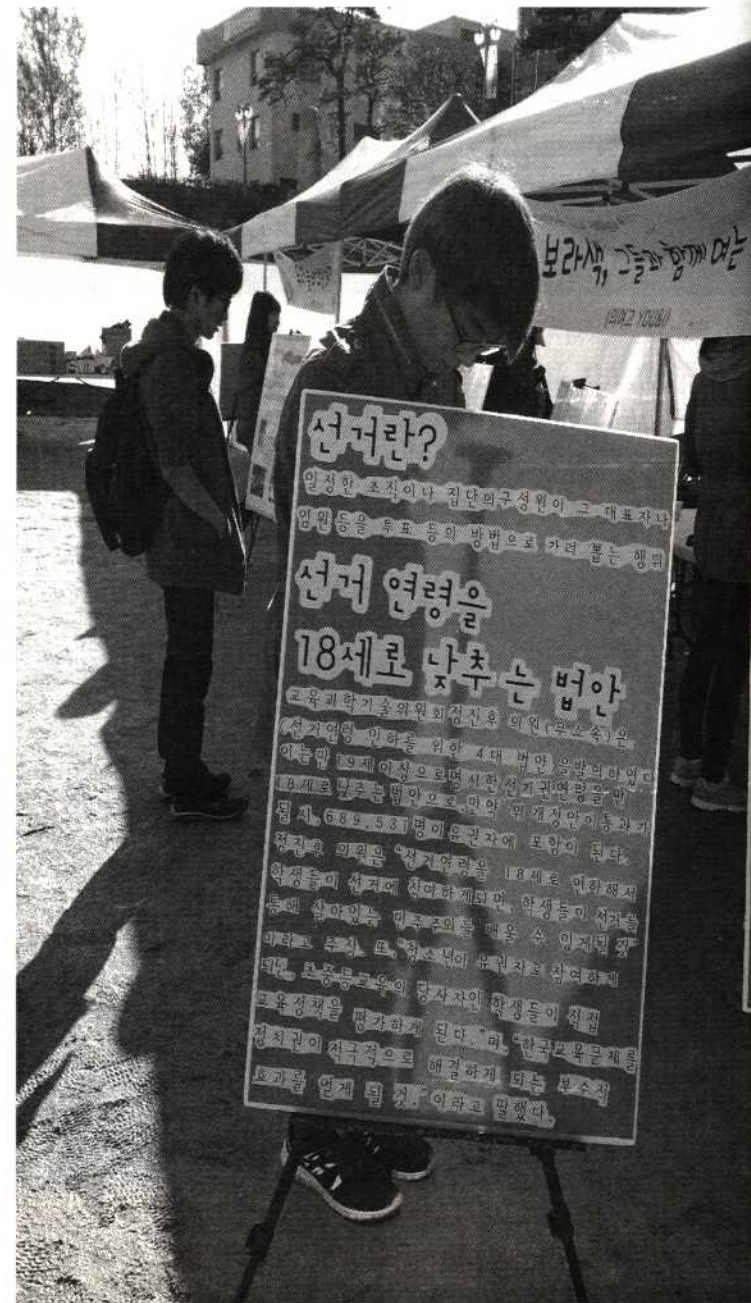 보라색, 그들과 함께 여는
선거란?
일정한 조직이나 집단의구성원이 그 대표자나
임원등을 투표 등의 방법으로 가려 뽑는 행위
선거 연령을
18세로 낮추는 법안
교육과학기술위원회정진후 의원(무소속)은
(선거연령 인하를 위한 4대 법안 을발의하였다
이는만19세이상으로명시한선거권연령을만
18세로낮추는법안으로 만약 위개정안이통과가
될시,689,531명이유권자에 포함이 된다.
정진후 의원은 "선거연령을 18세로 인하해서
학생들이 선거에 참여하게되면, 학생들이 선거를
통해 살아있는 민주주의를 배울 수 있게될 것"
이라고 주장. 또,"청소년이 유권자로참여하게
되면, 초중등교육의 당사자인 학생들이 직접
교육정책을 평가하게 된다."며, "한국교육문제를
정치권이 적극적으로 해결하게 되는 부수적
효과를 얻게 될 것."이라고 말했다.